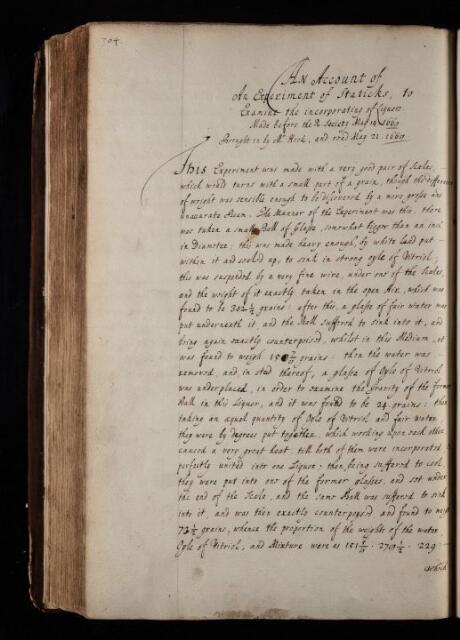 704
An Account of
An Experiment of Staticks, to
Examine the incorporating of Liquors
Made before the R. Society May 14 1669
Brought in by Mr Hook, and read May 21. 1669
This Experiment was made with a very good pair of Scales
which would turne with a small part of a grain, though the difference
of weight was sensible enough to be discovered by a more grosse and
unaccurate Beam. The Manner of the Experiment was this, there
was taken a small Ball of Glasse, somewhat bigger than an inch
in Diameter; this was made heavy enough, by white lead put
within it and seal'd up, to sink in strong oyle of Vitriol;
this was suspended by a very fine wire, under one of the Scales,
and the weight of it exactly taken in the open Air, which was
found to be 302½ grains: after this, a glasse of fair water was
put underneath it, and the Ball suffered to sink into it, and
being again exactly counterpoised, whilst in this Medium, it
was found to weigh grains: then the water was
removed, and, in stead thereof, a glasse of Oyle of Vitriol
was underplaced, in order to examine the gravity of the former
Ball in this Liquor, and it was found to be 24 grains: then
taking an equal quantity of Oyle of Vitriol and fair water
they were by degrees put together, which working upon each other
caused a very great heat, till both of them were incorporated
perfectly united into one Liquor: then, being suffered to cool,
they were put into one of the former glasses, and set under
the end of the Scale, and the same Ball was suffered to sink
into it, and was then exactly counterpoised and found to weigh
73½ grains, whence the proportion of the weights of the water
Oyle of Vitriol, and Mixture were as 151 . 278½ . 229
which